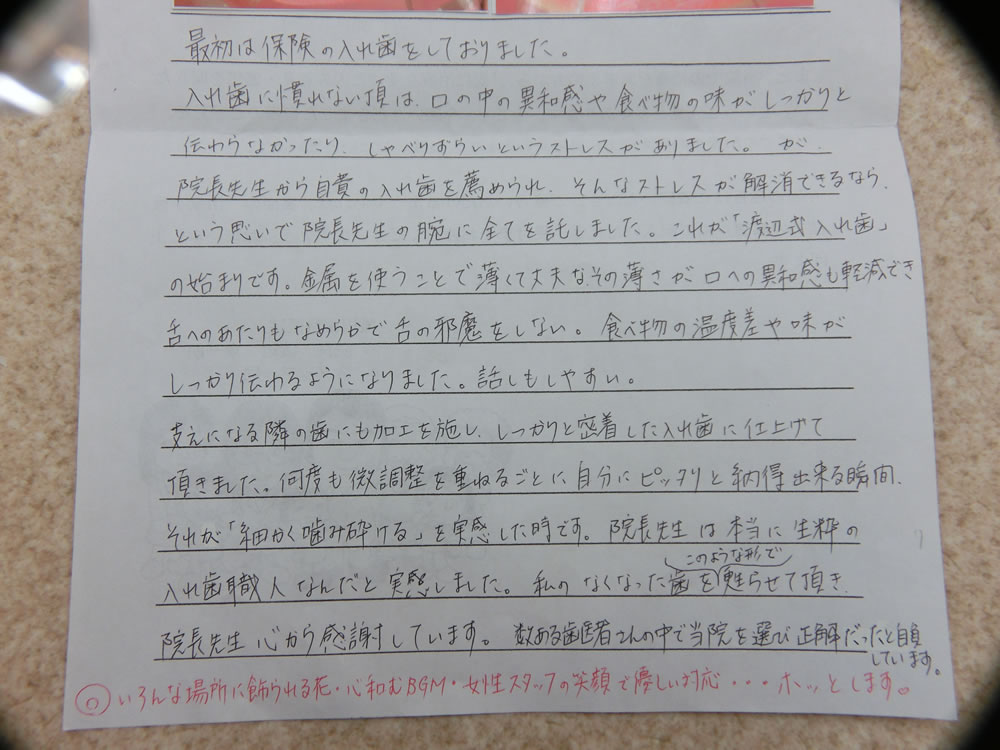 最初は保険の入れ歯をしておりました。
入れ歯に慣れない頃は、口の中の異和感や食べ物の味がしっかりと
伝わらなかったり、しゃべりずらいというストレスがありました。が、
院長先生から自費の入れ歯を薦められ、そんなストレスが解消できるなら、
という思いで院長先生の腕に全てを託しました。これが「渡辺式入れ歯」
の始まりです。金属を使うことで薄くて丈夫な、その薄さが口への異和感も軽減でき
舌へのあたりもなめらかで舌の邪魔をしない。食べ物の温度差や味が
しっかり伝わるようになりました。話しもしやすい。
支えになる隣の歯にも加工を施し、しっかりと密着した入れ歯に仕上げて
頂きました。何度も微調整を重ねるごとに自分にピッタリと納得出来る瞬間、
それが「細かく噛み砕ける」を実感した時です。院長先生は本当に生粋の
入れ歯職人なんだと実感しました。私のなくなった歯をこのような形で甦らせて頂き、
院長先生 心から感謝しています。数ある歯医者さんの中で当院を選び正解だったと自負
しています。
◎いろんな場所に飾られる花・心和むBGM・女性スタッフの笑顔で優しい対応・・・ホッとします。